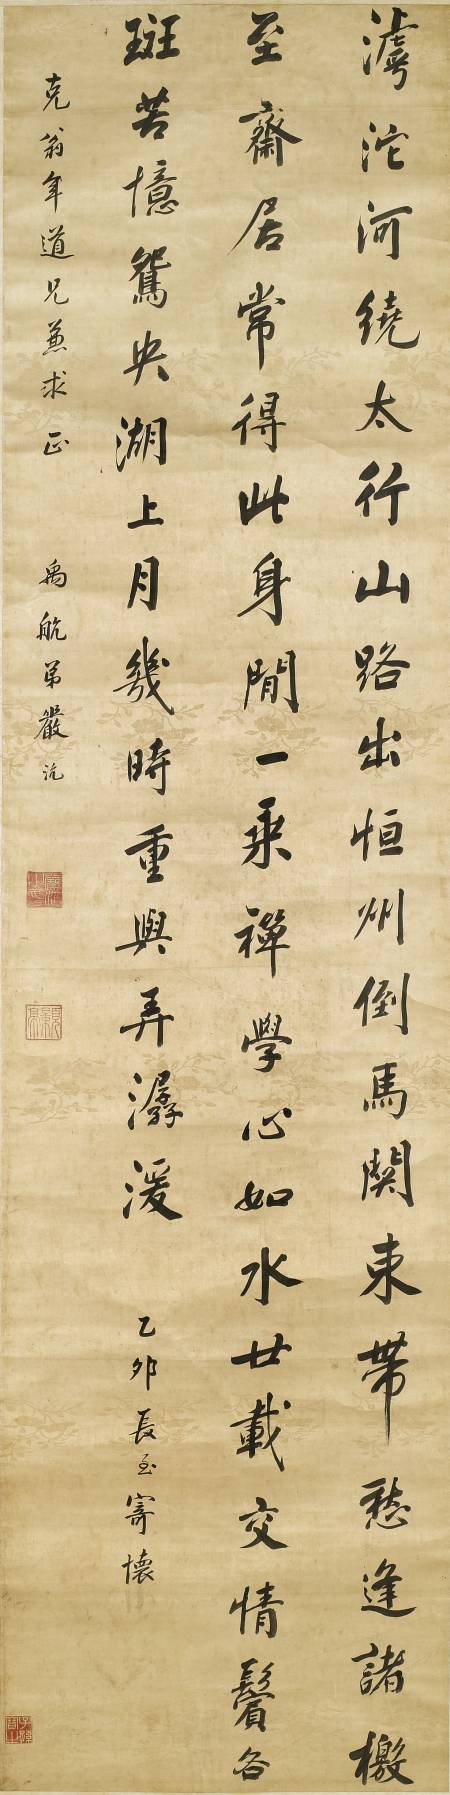 滹沱河繞太行山路出恒州倒馬關束帶愁逢諸檄
至齋居常得此身閒一乘禪學心如水廿載交情鬢各
斑苦憶鴛央湖上月幾時重與弄潺湲
乙夘長至寄懷
克翁年道兄兼求正
禹航弟嚴沆